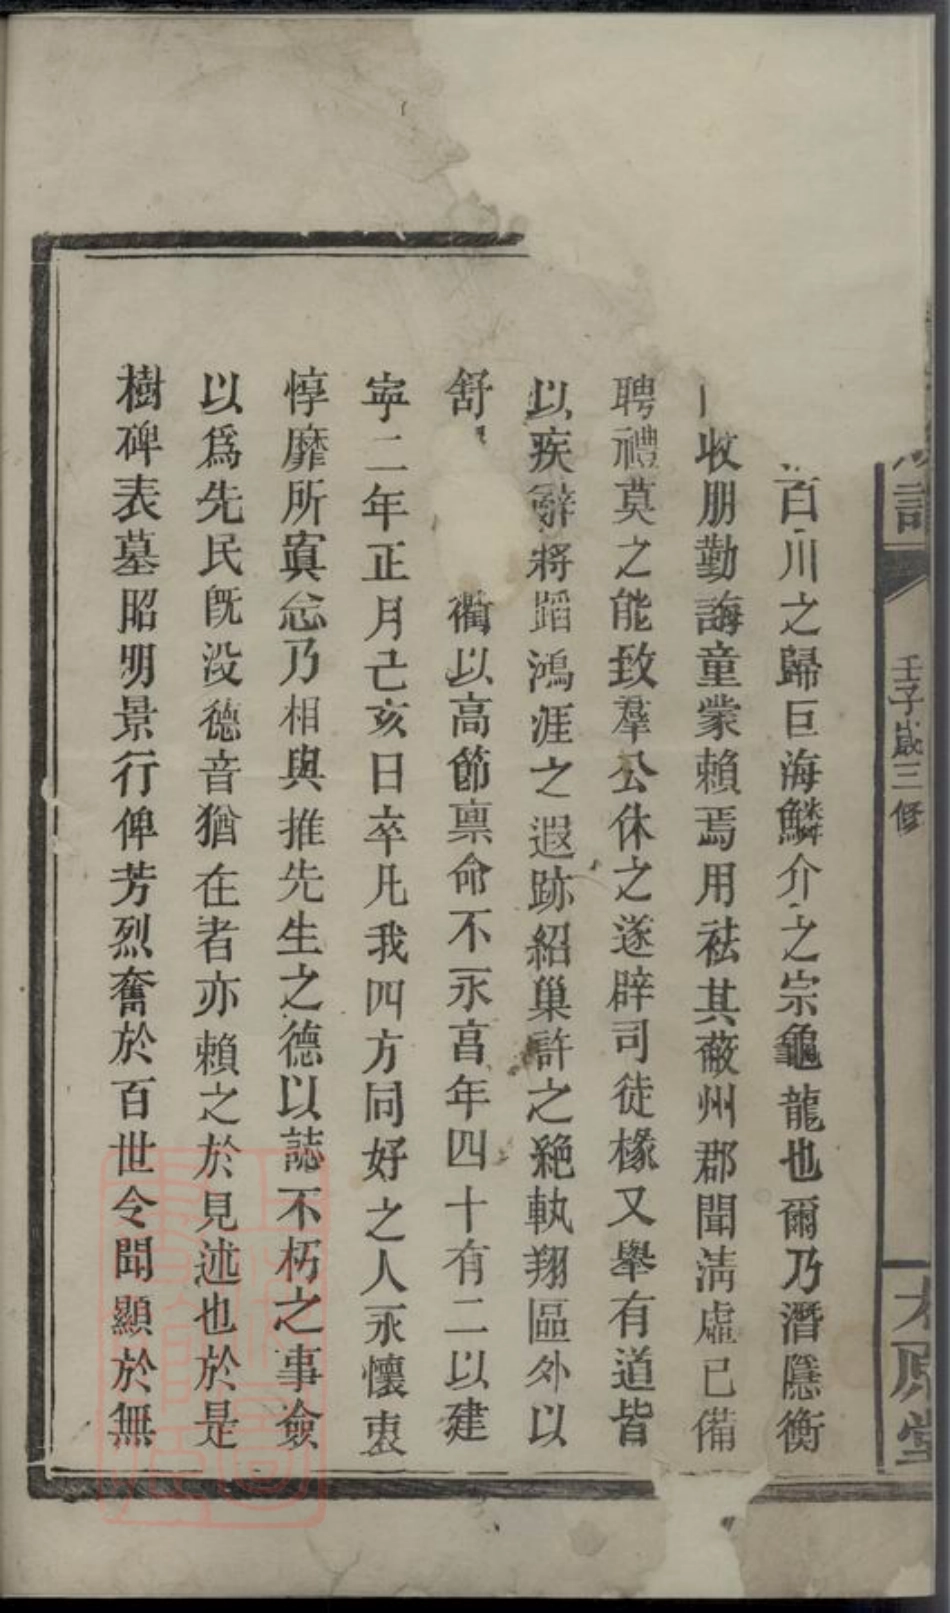 譜
壬子歲三修
太原堂
百川之歸巨海鱗介之宗龜龍也爾乃潛隱衡
收朋勤誨童蒙賴焉用祛其蔽州郡聞淸虛已備
聘禮莫之能致羣公休之遂辟司徒椽又舉有道皆
以疾辭將蹈鴻涯之遐跡紹巢許之絶軌翔區外以
舒衢以高節禀命不永亯年四十有二以建
寧二年正月己亥日卒凡我四方同好之人永懷衷
惇靡所寘忩乃相與推先生之德以誌不朽之事僉
以爲先民旣没德音猶在者亦賴之於見述也於是
樹碑表墓昭明景行俾芳烈奮於百世令聞顯於無